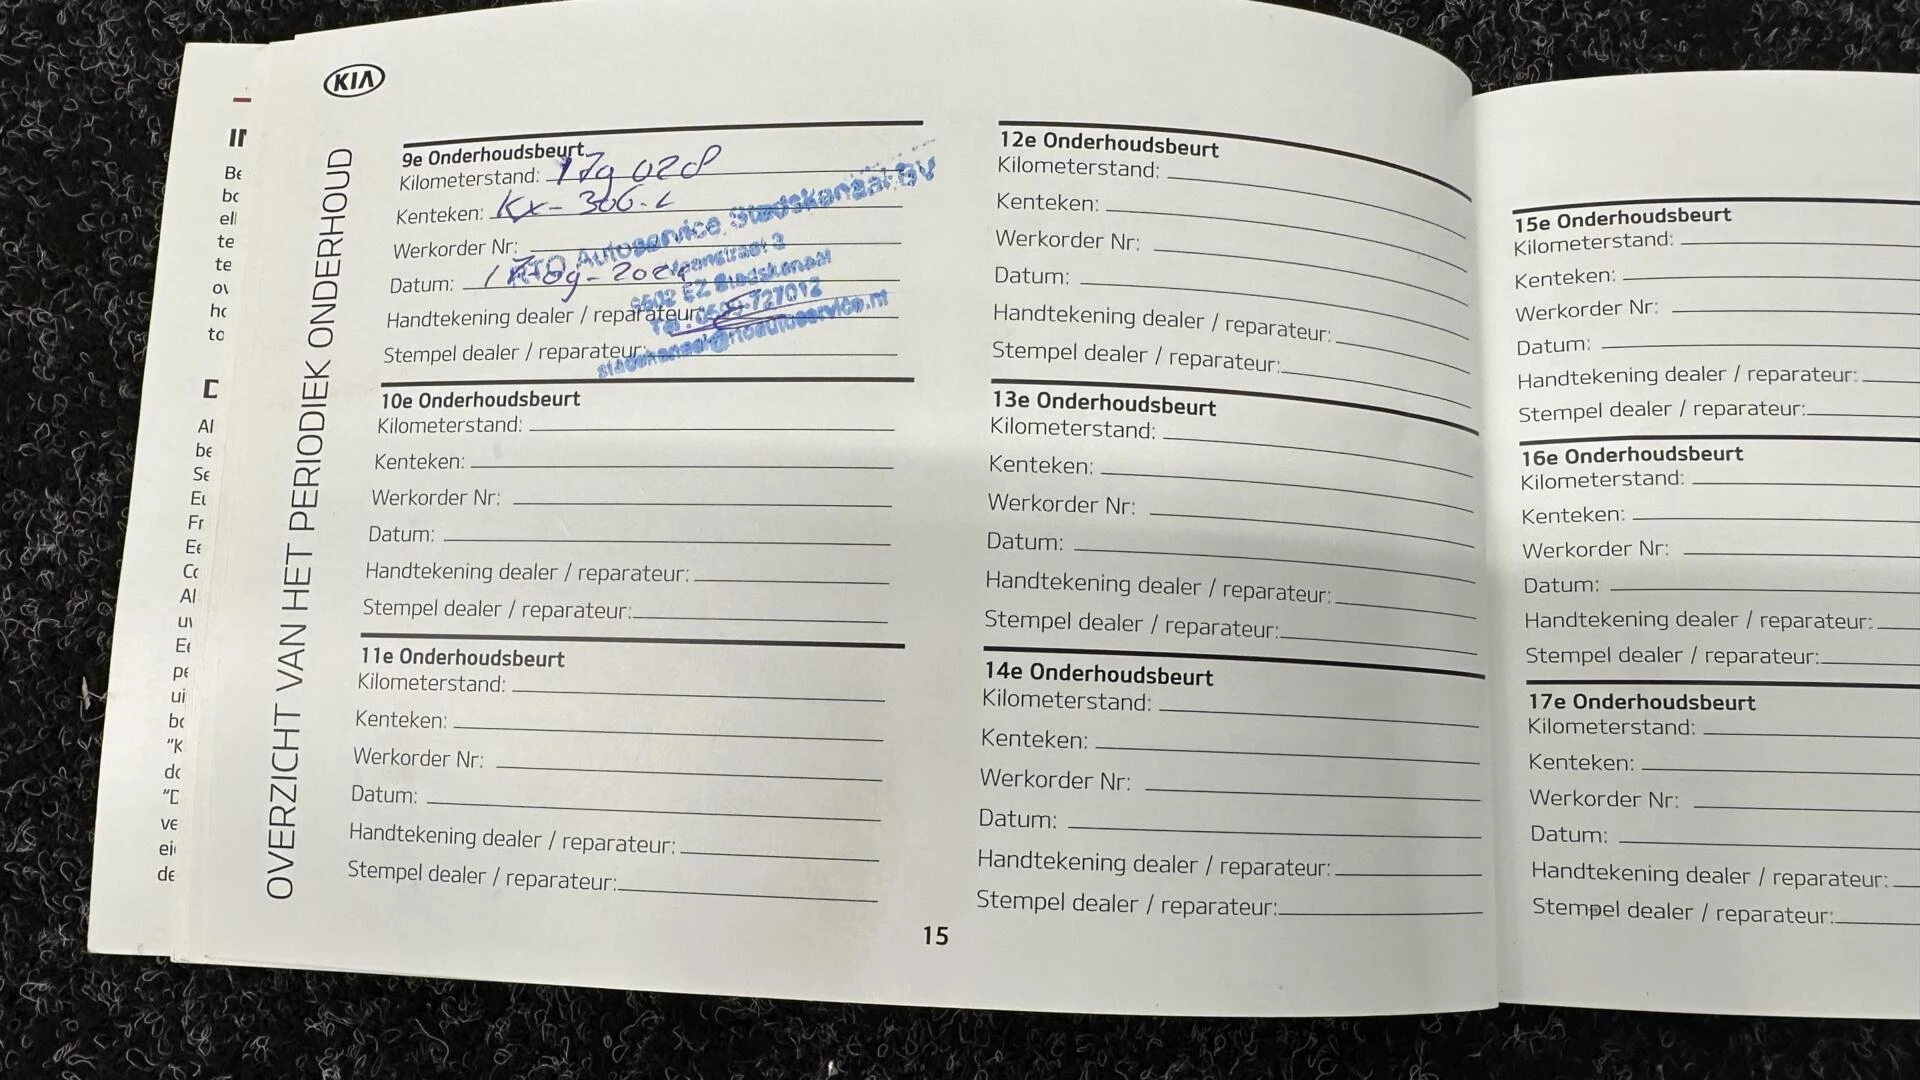 KIA
OVERZICHT VAN HET PERIODIEK ONDERHOUD
9e Onderhoudsbeurt
Kilometerstand: 179 028
Kenteken: KX-306-L
Werkorder Nr:
Datum: 17-09-2024
Handtekening dealer / reparateur:
Stempel dealer / reparateur:
Autoservice Stadskanaal BV
9502 EZ Stadskanaal
Tel.: 0599-727012
10e Onderhoudsbeurt
Kilometerstand:
Kenteken:
Werkorder Nr:
Datum:
Handtekening dealer / reparateur:
Stempel dealer / reparateur:
11e Onderhoudsbeurt
Kilometerstand:
Kenteken:
Werkorder Nr:
Datum:
Handtekening dealer / reparateur:
Stempel dealer / reparateur:
12e Onderhoudsbeurt
Kilometerstand:
Kenteken:
Werkorder Nr:
Datum:
Handtekening dealer / reparateur:
Stempel dealer / reparateur:
13e Onderhoudsbeurt
Kilometerstand:
Kenteken:
Werkorder Nr:
Datum:
Handtekening dealer / reparateur:
Stempel dealer / reparateur:
14e Onderhoudsbeurt
Kilometerstand:
Kenteken:
Werkorder Nr:
Datum:
Handtekening dealer / reparateur:
Stempel dealer / reparateur:
15
15e Onderhoudsbeurt
Kilometerstand:
Kenteken:
Werkorder Nr:
Datum:
Handtekening dealer / reparateur:
Stempel dealer / reparateur:
16e Onderhoudsbeurt
Kilometerstand:
Kenteken:
Werkorder Nr:
Datum:
Handtekening dealer / reparateur:
Stempel dealer / reparateur:
17e Onderhoudsbeurt
Kilometerstand:
Kenteken:
Werkorder Nr:
Datum:
Handtekening dealer / reparateur:
Stempel dealer / reparateur: